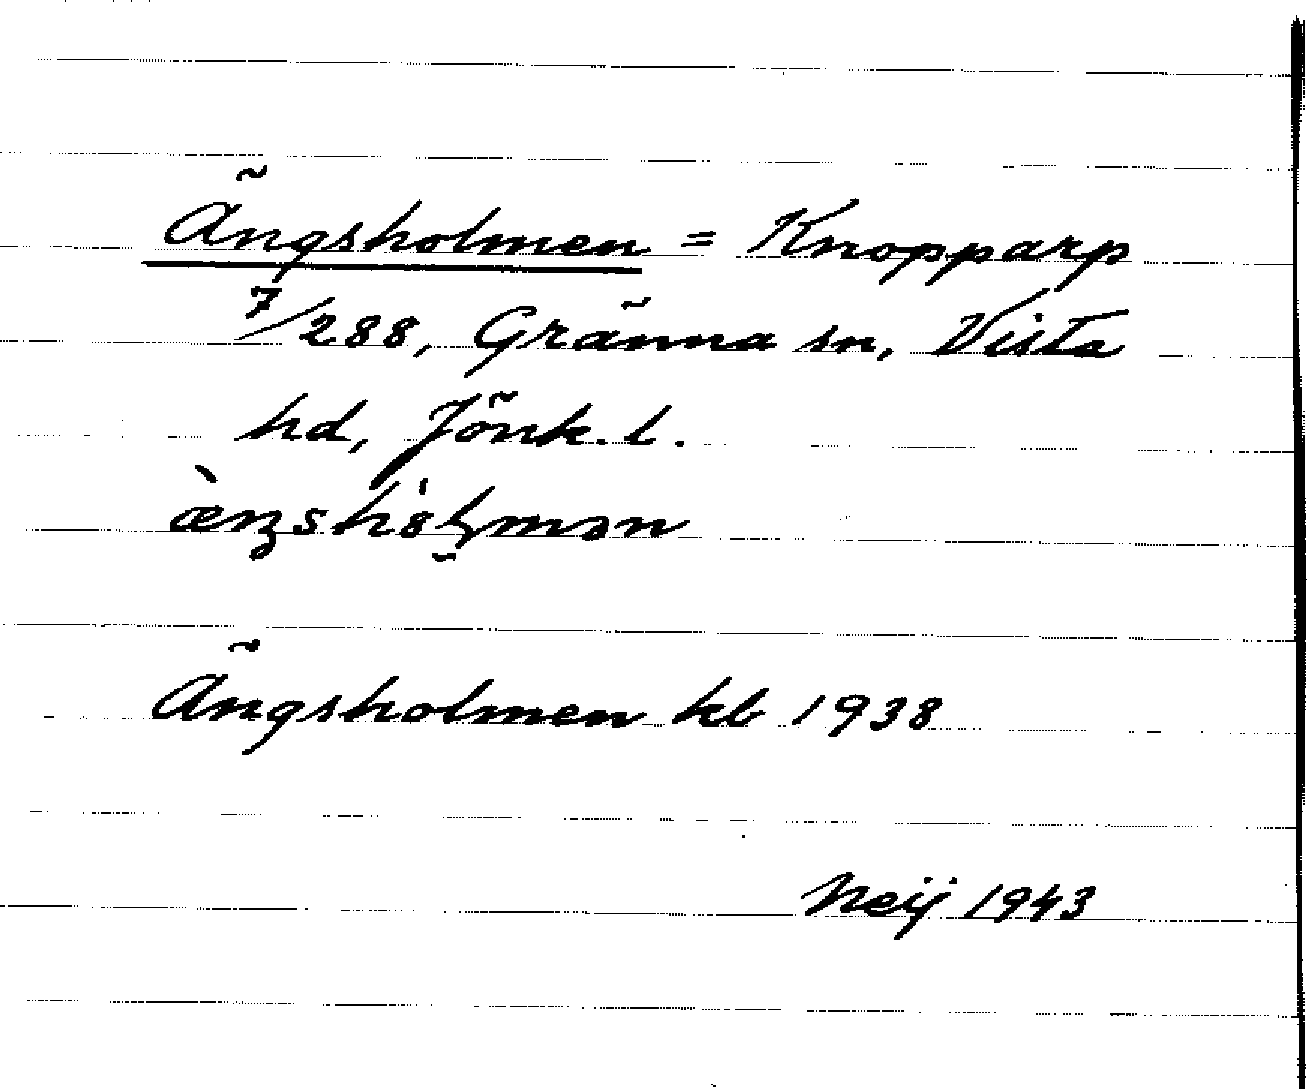 Ängsholmen = Knopparp
7/288, Gränna sn, Vista
hd, Jönk. l.
Ängsholmen kb 1938
Neij 1943